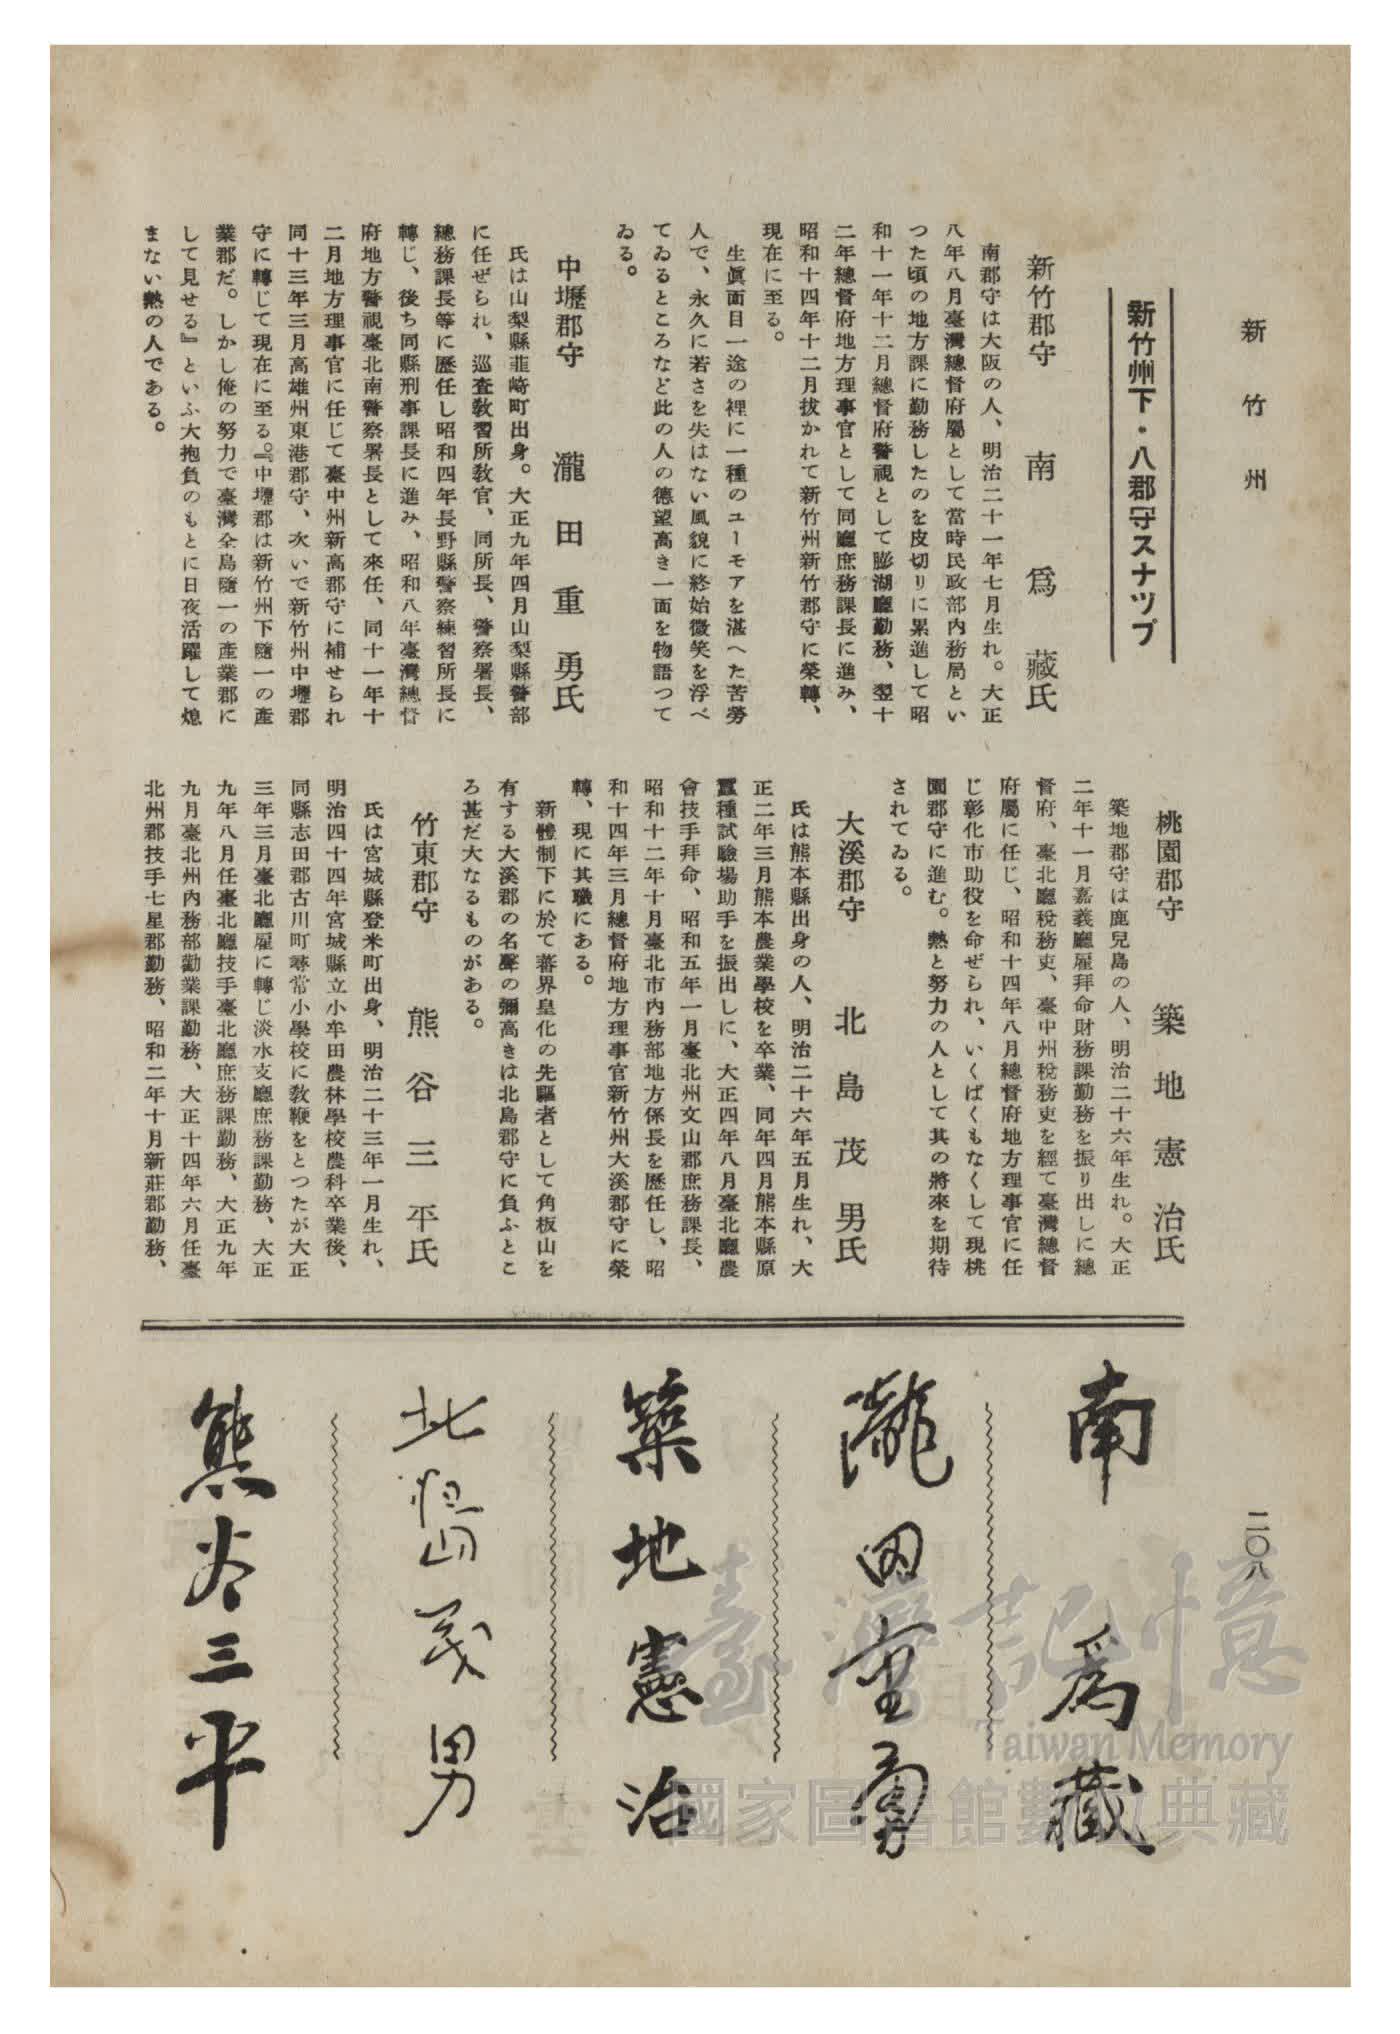 新竹州
新竹州下・八郡守スナツプ
新竹郡守　南爲藏氏
南郡守は大阪の人、明治二十一年七月生れ。大正
八年八月臺灣總督府屬として當時民政部內務局とい
つた頃の地方課に勤務したのを皮切りに累進して昭
和十一年十二月總督府警視として膨湖廳勤務、翌十
二年總督府地方理事官として同廳庶務課長に進み、
昭和十四年十二月拔かれて新竹州新竹郡守に榮轉、
現在に至る。
生眞面目一途の裡に一種のユーモアを湛へた苦勞
人で、永久に若さを失はない風貌に終始微笑を浮べ
てゐるところなど此の人の德望高き一面を物語つて
ゐる。
中壢郡守　瀧田重勇氏
氏は山梨縣韮崎町出身。大正九年四月山梨縣警部
に任ぜられ、巡査敎習所敎官、同所長、警察署長、
總務課長等に歷任し昭和四年長野縣警察練習所長に
轉じ、後ち同縣刑事課長に進み、昭和八年臺灣總督
府地方警視臺北南警察署長として來任、同十一年十
二月地方理事官に任じて臺中州新高郡守に補せられ
同十三年三月高雄州東港郡守、次いで新竹州中壢郡
守に轉じて現在に至る。『中壢郡は新竹州下隨一の產
業郡だ。しかし俺の努力で臺灣全島隨一の產業郡に
して見せる』といふ大抱負のもとに日夜活躍して熄
まない熱の人である。
桃園郡守　築地憲治氏
築地郡守は鹿兒島の人、明治二十六年生れ。大正
二年十一月嘉義廳雇拜命財務課勤務を振り出しに總
督府、臺北廳稅務吏、臺中州稅務吏を經て臺灣總督
府屬に任じ、昭和十四年八月總督府地方理事官に任
じ彰化市助役を命ぜられ、いくばくもなくして現桃
園郡守に進む。熱と努力の人として其の將來を期待
されてゐる。
大溪郡守　北島茂男氏
氏は熊本縣出身の人、明治二十六年五月生れ、大
正二年三月熊本農業學校を卒業、同年四月熊本縣原
蠶種試驗場助手を振出しに、大正四年八月臺北廳農
會技手拜命、昭和五年一月臺北州文山郡庶務課長、
昭和十二年十月臺北市內務部地方係長を歷任し、昭
和十四年三月總督府地方理事官新竹州大溪郡守に榮
轉、現に其職にある。
新體制下に於て蕃界皇化の先驅者として角板山を
有する大溪郡の名聲の彌高きは北島郡守に負ふとこ
ろ甚だ大なるものがある。
竹東郡守　熊谷三平氏
氏は宮城縣登米町出身、明治二十三年一月生れ、
明治四十四年宮城縣立小牟田農林學校農科卒業後、
同縣志田郡古川町尋常小學校に敎鞭をとつたが大正
三年三月臺北廳雇に轉じ淡水支廳庶務課勤務、大正
九年八月任臺北廳技手臺北廳庶務課勤務、大正九年
九月臺北州內務部勸業課勤務、大正十四年六月任臺
北州郡技手七星郡勤務、昭和二年十月新莊郡勤務、
南爲藏
瀧田重勇
築地憲治
北嶋茂男
熊谷三平
二〇八
臺灣記憶
Taiwan Memory
國家圖書館數位典藏